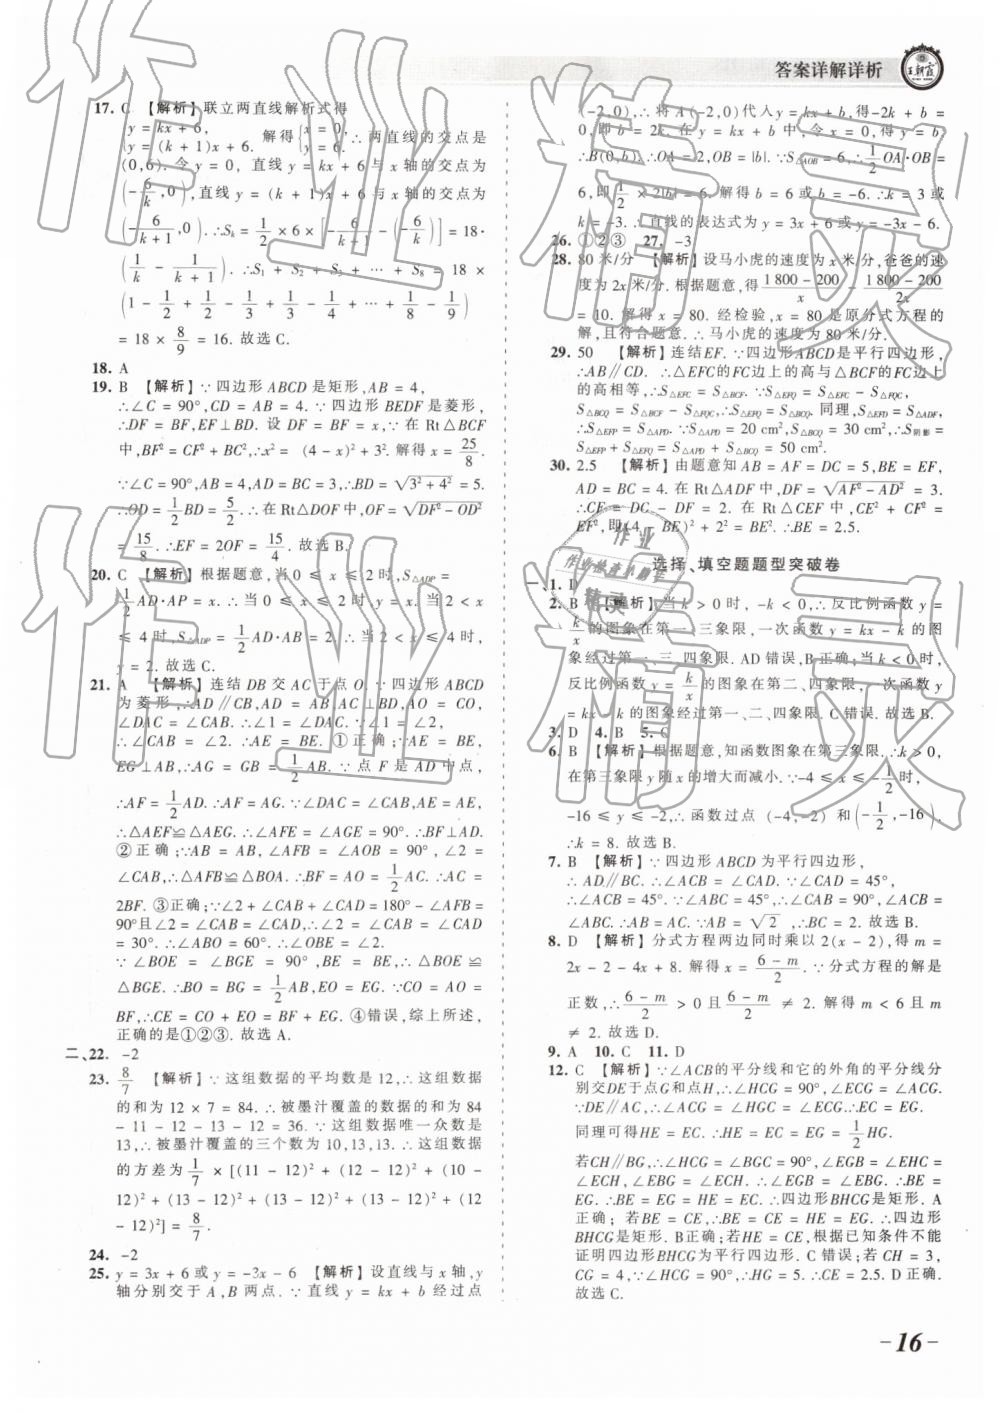 答案详解详析
王朝霞
17. C 【解析】联立两直线解析式得
{y = kx + 6, y = (k + 1)x + 6. 解得{x = 0, y = 6. ∴两直线的交点是
(0,6). 令 y = 0, 直线 y = kx + 6 与 x 轴的交点为
(-6/k,0), 直线 y = (k + 1)x + 6 与 x 轴的交点为
(-6/(k+1),0). ∴S_k = 1/2 × 6 × [-6/(k+1) - (-6/k)] = 18·
(1/k - 1/(k+1)). ∴S₁ + S₂ + S₃ + … + S₈ = 18 ×
(1 - 1/2 + 1/2 - 1/3 + 1/3 - 1/4 + … + 1/8 - 1/9)
= 18 × 8/9 = 16. 故选 C.
18. A
19. B 【解析】∵四边形 ABCD 是矩形, AB = 4,
∴∠C = 90°, CD = AB = 4. ∵四边形 BEDF 是菱形,
∴DF = BF, EF⊥BD. 设 DF = BF = x, 在 Rt△BCF
中, BF² = CF² + BC², ∴x² = (4 - x)² + 3². 解得 x = 25/8.
∵∠C = 90°, AB = 4, AD = BC = 3, ∴BD = √(3² + 4²) = 5.
∴OD = 1/2 BD = 5/2. ∴在 Rt△DOF 中, OF = √(DF² - OD²)
= 15/8. ∴EF = 2OF = 15/4. 故选 B.
20. C 【解析】根据题意, 当 0 ≤ x ≤ 2 时, S△ADP =
1/2 AD·AP = x. ∴当 0 ≤ x ≤ 2 时, y = x. 当 2 ≤ x
≤ 4 时, S△ADP = 1/2 AD·AB = 2, ∴当 2 ≤ x ≤ 4 时,
y = 2. 故选 C.
21. A 【解析】连结 DB 交 AC 于点 O. ∵四边形 ABCD
为菱形, ∴AD∥CB, AD = AB, AC⊥BD, AO = CO,
∠DAC = ∠CAB. ∴∠1 = ∠DAC. ∵∠1 = ∠2,
∴∠CAB = ∠2. ∴AE = BE. ①正确; ∵AE = BE,
EG⊥AB, ∴AG = GB = 1/2 AB. ∵点 F 是 AD 中点,
∴AF = 1/2 AD. ∴AF = AG. ∵∠DAC = ∠CAB, AE = AE,
∴△AEF≌△AEG. ∴∠AFE = ∠AGE = 90°. ∴BF⊥AD.
②正确; ∵AB = AB, ∠AFB = ∠AOB = 90°, ∠2 =
∠CAB, ∴△AFB≌△BOA. ∴BF = AO = 1/2 AC. ∴AC =
2BF. ③正确; ∵∠2 + ∠CAB + ∠CAD = 180° - ∠AFB =
90°且∠2 = ∠CAB = ∠CAD, ∴∠2 = ∠CAB = ∠CAD
= 30°. ∴∠ABO = 60°. ∴∠OBE = ∠2.
∵∠BOE = ∠BGE = 90°, BE = BE, ∴△BOE≌
△BGE. ∴BO = BG = 1/2 AB, EO = EG. ∵CO = AO =
BF, ∴CE = CO + EO = BF + EG. ④错误, 综上所述,
正确的是①②③. 故选 A.
二、22. -2
23. 8/7 【解析】∵这组数据的平均数是 12, ∴这组数据
的和为 12 × 7 = 84. ∴被墨汁覆盖的数据的和为 84
- 11 - 12 - 13 - 12 = 36. ∵这组数据唯一众数是
13, ∴被墨汁覆盖的三个数为 10,13,13. ∴这组数据
的方差为 1/7 × [(11 - 12)² + (12 - 12)² + (10 -
12)² + (13 - 12)² + (13 - 12)² + (13 - 12)² + (12
- 12)²] = 8/7.
24. -2
25. y = 3x + 6 或 y = -3x - 6 【解析】设直线与 x 轴, y
轴分别交于 A, B 两点. ∵直线 y = kx + b 经过点
(-2,0), ∴将 A(-2,0)代入 y = kx + b, 得 -2k + b =
0, 即 b = 2k. 在 y = kx + b 中, 令 x = 0, 得 y = b.
∴B(0,b). ∴OA = 2, OB = |b|. ∵S△AOB = 6, ∴1/2 OA·OB =
6, 即 1/2 × 2|b| = 6. 解得 b = 6 或 b = -6. ∴k = 3 或
k = -3. ∴直线的表达式为 y = 3x + 6 或 y = -3x - 6.
26. ①②③ 27. -3
28. 80 米/分 【解析】设马小虎的速度为 x 米/分, 爸爸的速
度为 2x 米/分. 根据题意, 得 (1 800 - 200)/x - (1 800 - 200)/2x
= 10. 解得 x = 80. 经检验, x = 80 是原分式方程的
解, 且符合题意. ∴马小虎的速度为 80 米/分.
29. 50 【解析】连结EF. ∵四边形ABCD是平行四边形,
∴AB∥CD. ∴△EFC的FC边上的高与△BCF的FC边上
的高相等, ∴S△EFC = S△BCF. ∵S△EFQ = S△EFC - S△FQC,
S△BCQ = S△BCF - S△FQC, ∴S△EFQ = S△BCQ. 同理, S△EFD = S△ADF,
∴S△EFP = S△APD. ∵S△APD = 20 cm², S△BCQ = 30 cm², ∴S阴影 =
S△EFP + S△EFQ = S△APD + S△BCQ = 50 cm².
30. 2.5 【解析】由题意知 AB = AF = DC = 5, BE = EF,
AD = BC = 4. 在 Rt△ADF 中, DF = √(AF² - AD²) = 3.
∴CF = DC - DF = 2. 在 Rt△CEF 中, CE² + CF² =
EF², 即(4 - BE)² + 2² = BE². ∴BE = 2.5.
选择、填空题题型突破卷
一、1. D
2. B 【解析】当 k > 0 时, -k < 0, ∴反比例函数 y =
k/x 的图象在第一、三象限, 一次函数 y = kx - k 的图
象经过第一、三、四象限. AD 错误, B 正确; 当 k < 0 时,
反比例函数 y = k/x 的图象在第二、四象限, 一次函数 y
= kx - k 的图象经过第一、二、四象限. C 错误. 故选 B.
3. D 4. B 5. C
6. B 【解析】根据题意, 知函数图象在第三象限. ∴k > 0,
在第三象限 y 随 x 的增大而减小. ∵-4 ≤ x ≤ -1/2 时,
-16 ≤ y ≤ -2, ∴函数过点 (-4,-2) 和 (-1/2,-16).
∴k = 8. 故选 B.
7. B 【解析】∵四边形 ABCD 为平行四边形,
∴AD∥BC. ∴∠ACB = ∠CAD. ∵∠CAD = 45°,
∴∠ACB = 45°. ∵∠ABC = 45°, ∴∠CAB = 90°, ∠ACB =
∠ABC. ∴AB = AC. ∵AB = √2, ∴BC = 2. 故选 B.
8. D 【解析】分式方程两边同时乘以 2(x - 2), 得 m =
2x - 2 - 4x + 8. 解得 x = (6 - m)/2. ∵分式方程的解是
正数, ∴(6 - m)/2 > 0 且 (6 - m)/2 ≠ 2. 解得 m < 6 且 m
≠ 2. 故选 D.
9. A 10. C 11. D
12. C 【解析】∵∠ACB的平分线和它的外角的平分线分
别交DE于点G和点H, ∴∠HCG = 90°, ∠ECG = ∠ACG.
∵DE∥AC, ∴∠ACG = ∠HGC = ∠ECG. ∴EC = EG.
同理可得HE = EC. ∴HE = EC = EG = 1/2 HG.
若CH∥BG, ∴∠HCG = ∠BGC = 90°, ∠EGB = ∠EHC =
∠ECH, ∠EBG = ∠ECH. ∴∠EGB = ∠EBG. ∴BE =
EG. ∴BE = EG = HE = EC. ∴四边形BHCG是矩形. A
正确; 若BE = CE, ∴BE = CE = HE = EG. ∴四边形
BHCG是矩形. B正确; 若HE = CE, 根据已知条件不能
证明四边形BHCG为矩形. C 错误; 若 CH = 3,
CG = 4, ∵∠HCG = 90°, ∴HG = 5. ∴CE = 2.5. D 正确.
故选 C.
作业精灵
作业精灵
作业
作业检查小助手
精灵
- 16 -